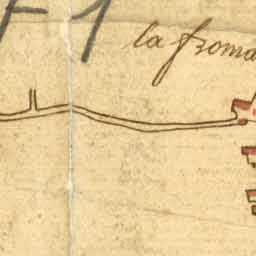 1
la froma